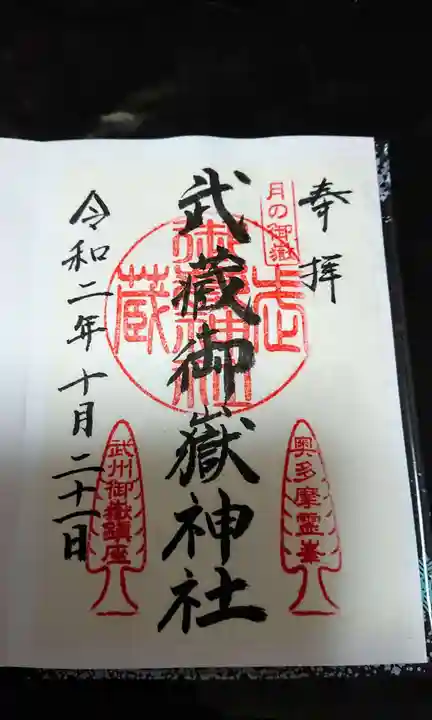 奉拝
月の御嶽
奥多摩霊峯
武蔵御嶽神社
武蔵
御嶽神社
武州御嶽鎮座
令和二年十月二十一日